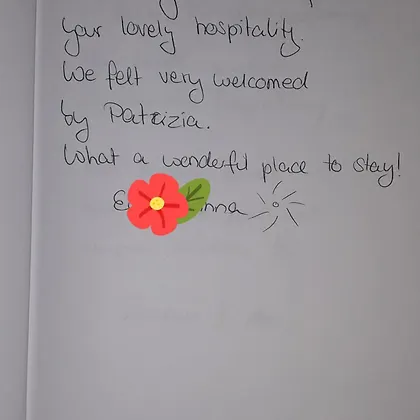 your lovely hospitality.
We felt very welcomed
by Patrizia.
What a wonderful place to stay!